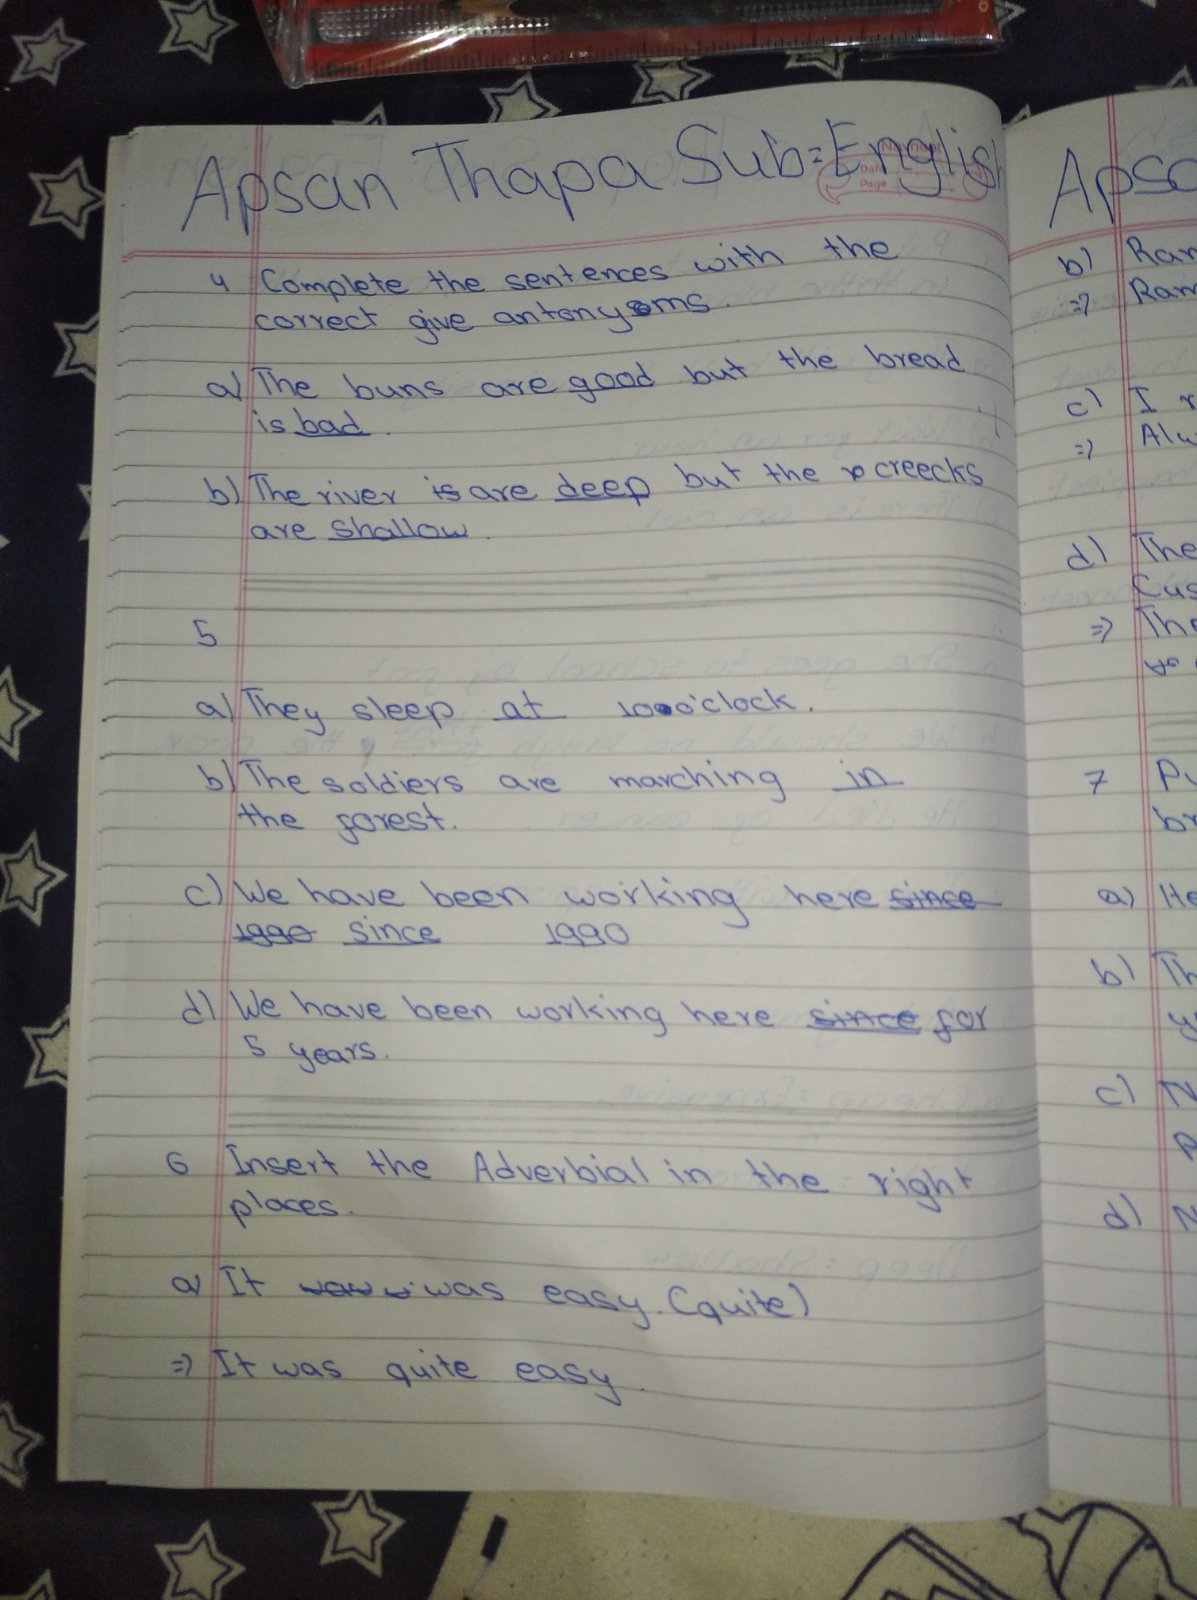 Apsan Thapa Sub:English
4 Complete the sentences with the
correct give antonyms.
a) The buns are good but the bread
is bad.
b) The river is are deep but the creecks
are shallow.
5
a) They sleep at 10 o'clock.
b) The soldiers are marching in
the forest.
c) We have been working here since
1990 since 1990
d) We have been working here since for
5 years.
6 Insert the Adverbial in the right
places.
a) It was easy. (quite)
=> It was quite easy.
Apsa
b) Ram
=> Ram
c) I
=> Alw
d) The
Cus
=> The
7
a) He
b) Th
c) N
d) N